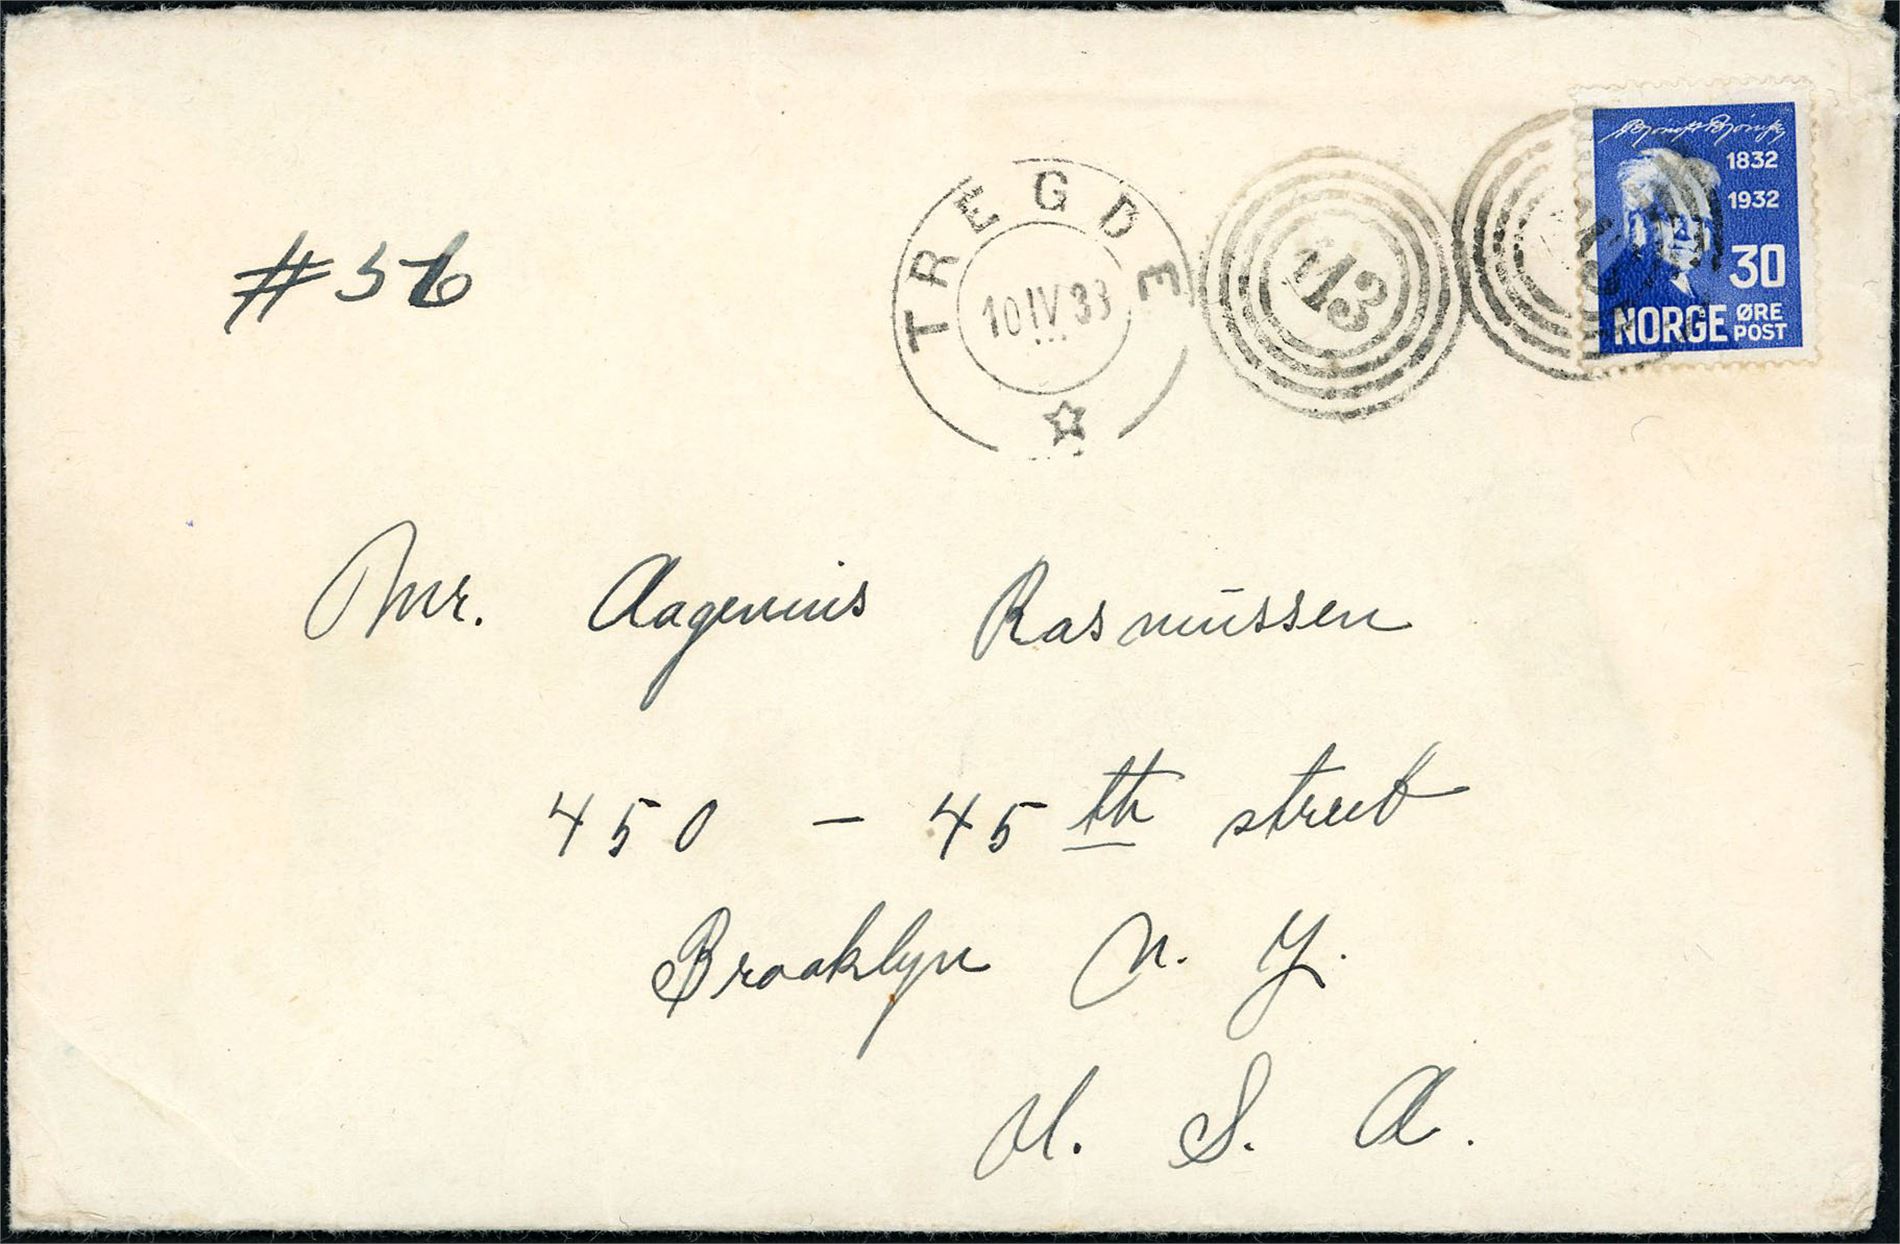 Bjørnst Bjørnson
1832
1932
30
NORGE ØRE POST
TREGDE
10 IV 33
113
#56
Mr. Aagenius Rasmussen
450 - 45 th street
Brooklyn N. Y.
U. S. A.